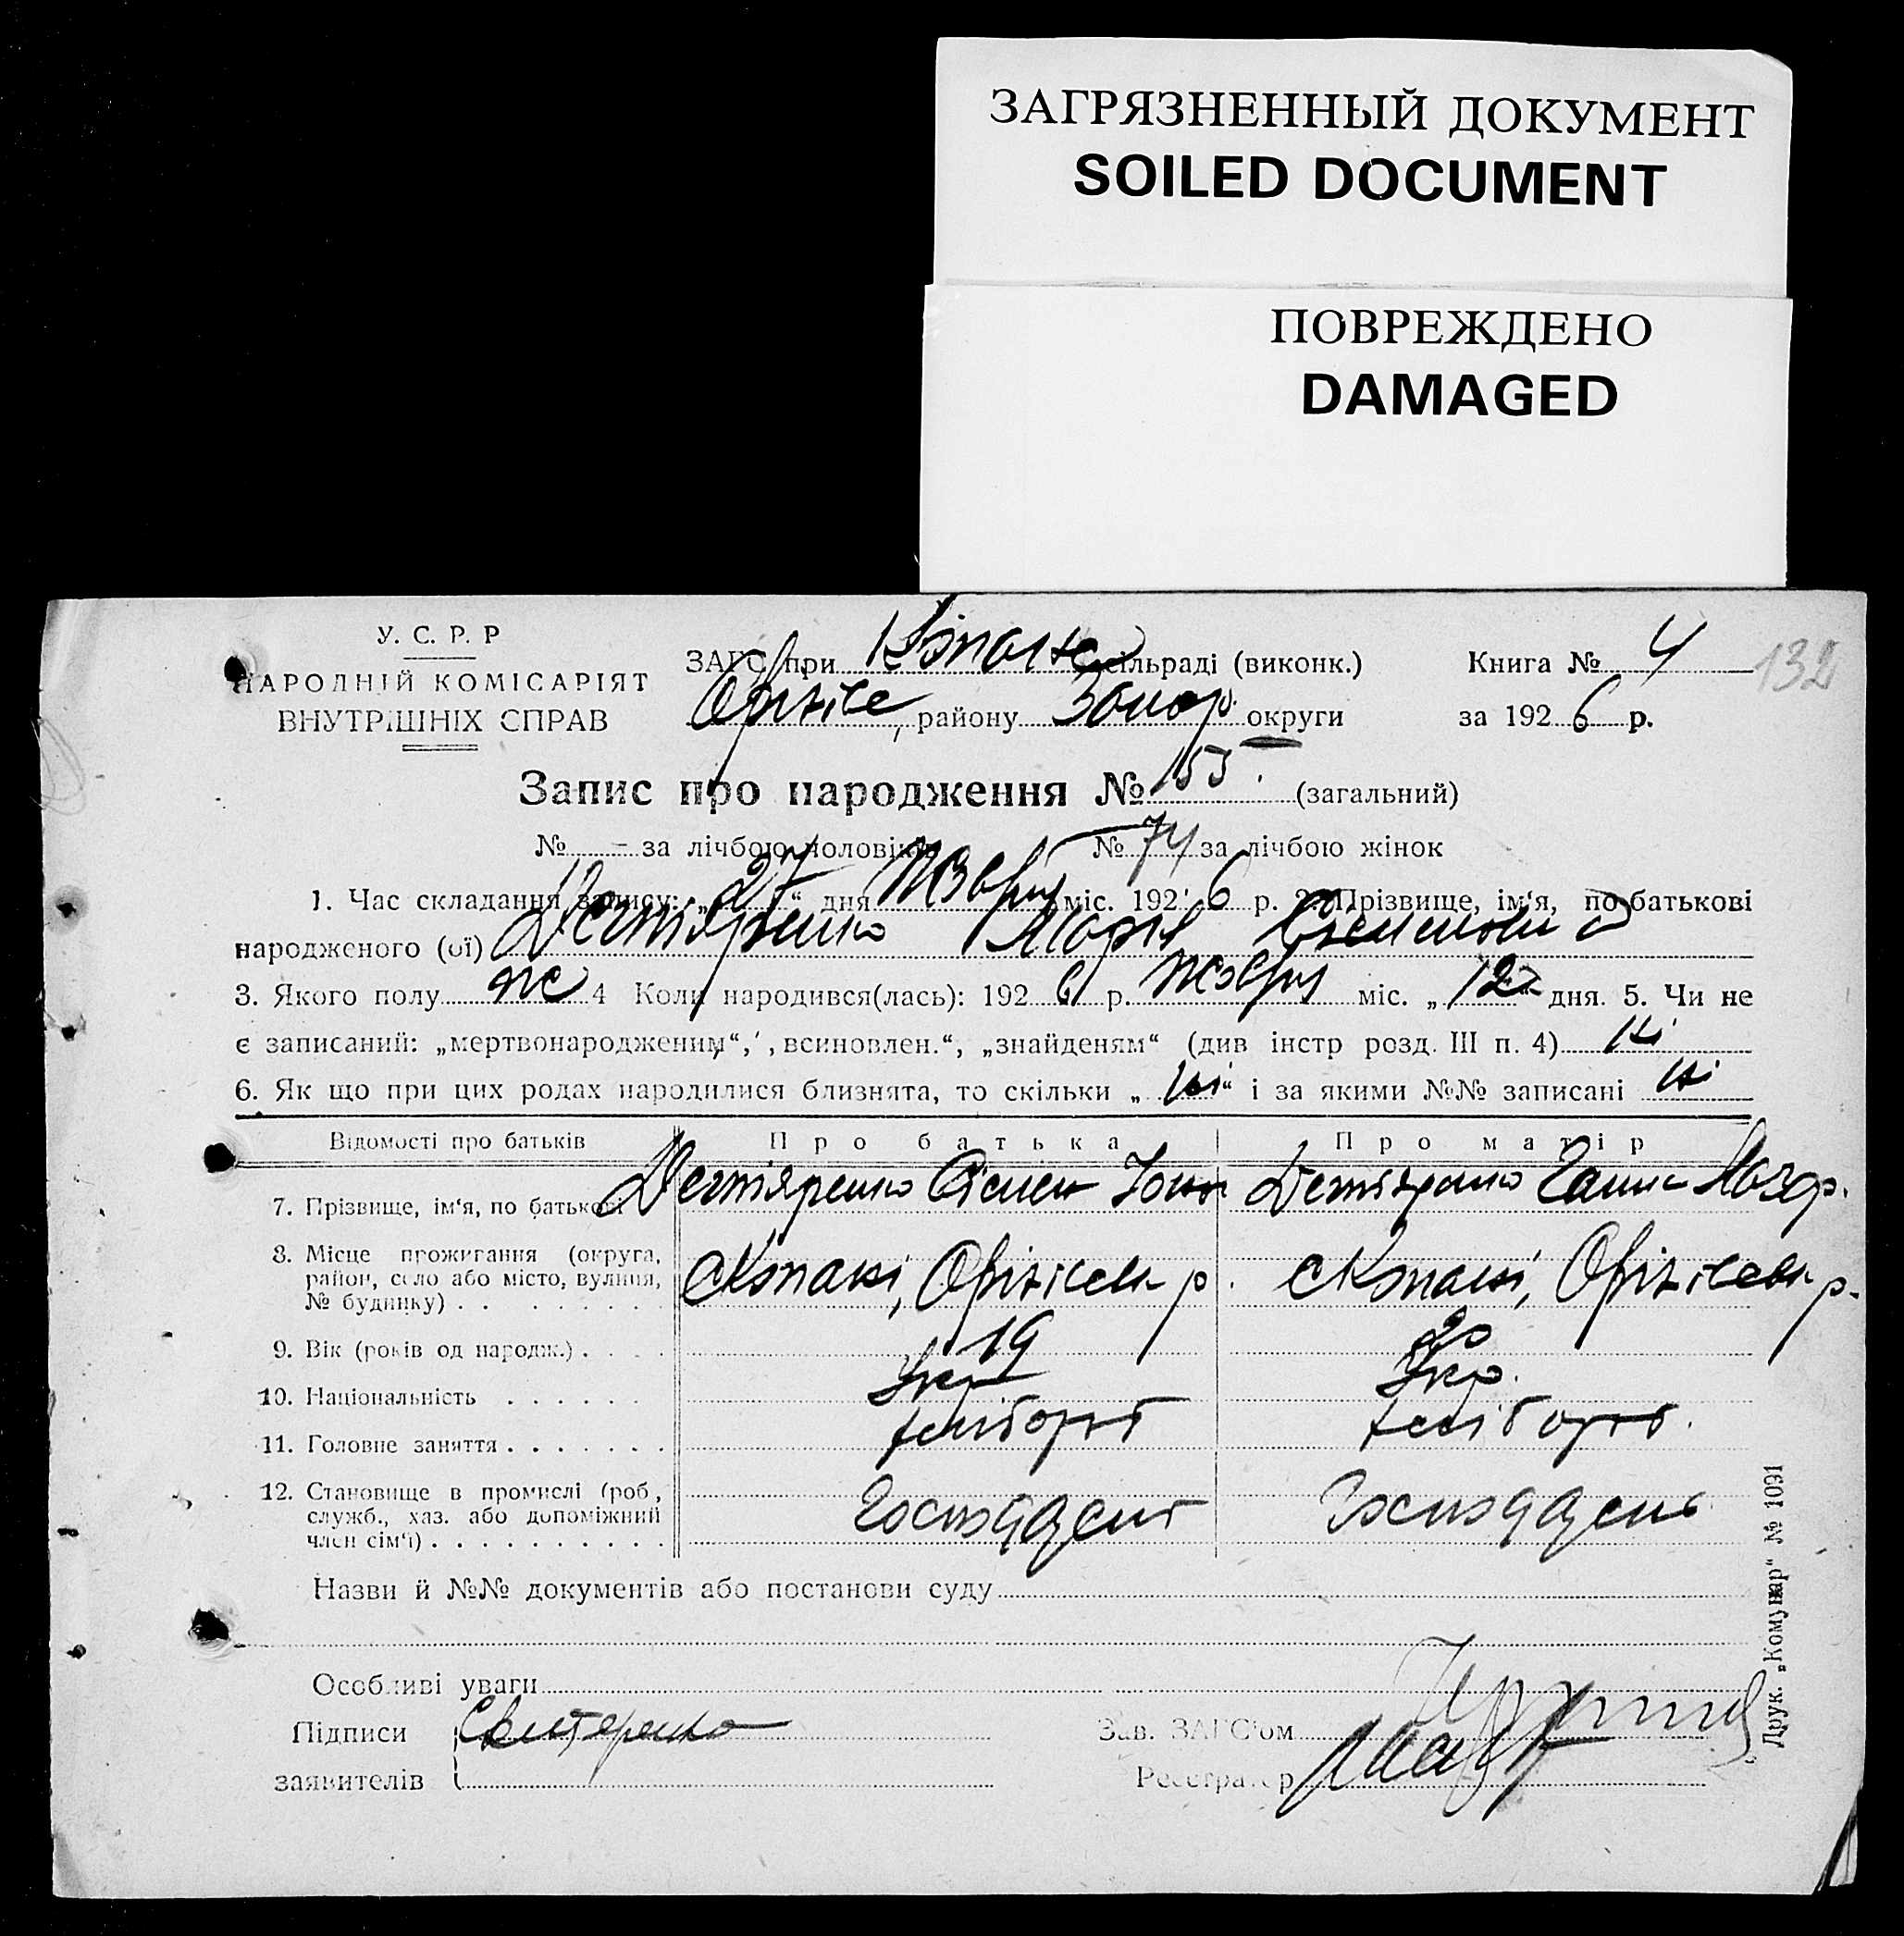 ЗАГРЯЗНЕННЫЙ ДОКУМЕНТ
SOILED DOCUMENT
ПОВРЕЖДЕНО
DAMAGED
У. С. Р. Р
НАРОДНІЙ КОМІСАРІЯТ
ВНУТРІШНІХ СПРАВ
ЗАГС при сільраді (виконк.)
району Запор. округи
Книга № 4
132
за 1926 р.
Запис про народження № 155. (загальний)
№ - за лічбою чоловіків № 74 за лічбою жінок
1. Час складання запису: „27“ дня жовтня міс. 1926 р. 2. Прізвище, ім'я, по батькові
народженого (ої) Дегтяренко Марія Семенівна
3. Якого полу жс 4 Коли народився(лась): 1926 р. жовтня міс. „12“ дня. 5. Чи не
є записаний: „мертвонародженим“, „всиновлен.“, „знайденям“ (див інстр розд. III п. 4) ні
6. Як що при цих родах народилися близнята, то скільки „ні“ і за якими №№ записані ні
Відомості про батьків Про батька Про матір
7. Прізвище, ім'я, по батькові Дегтяренко Семен Дегтяренко Ганна Назар.
8. Місце проживання (округа,
район, село або місто, вулиця,
№ будинку)
9. Вік (років од народж.) 19 20
10. Національність Укр Укр.
11. Головне заняття хлібороб хлібороб.
12. Становище в промислі (роб,
служб., хаз. або допоміжний
член сім'ї)
Назви й №№ документів або постанови суду
Особливі уваги
Підписи
заявителів
Зав. ЗАГС'ом
Реєстратор
Друк. „Комунар“ № 1091